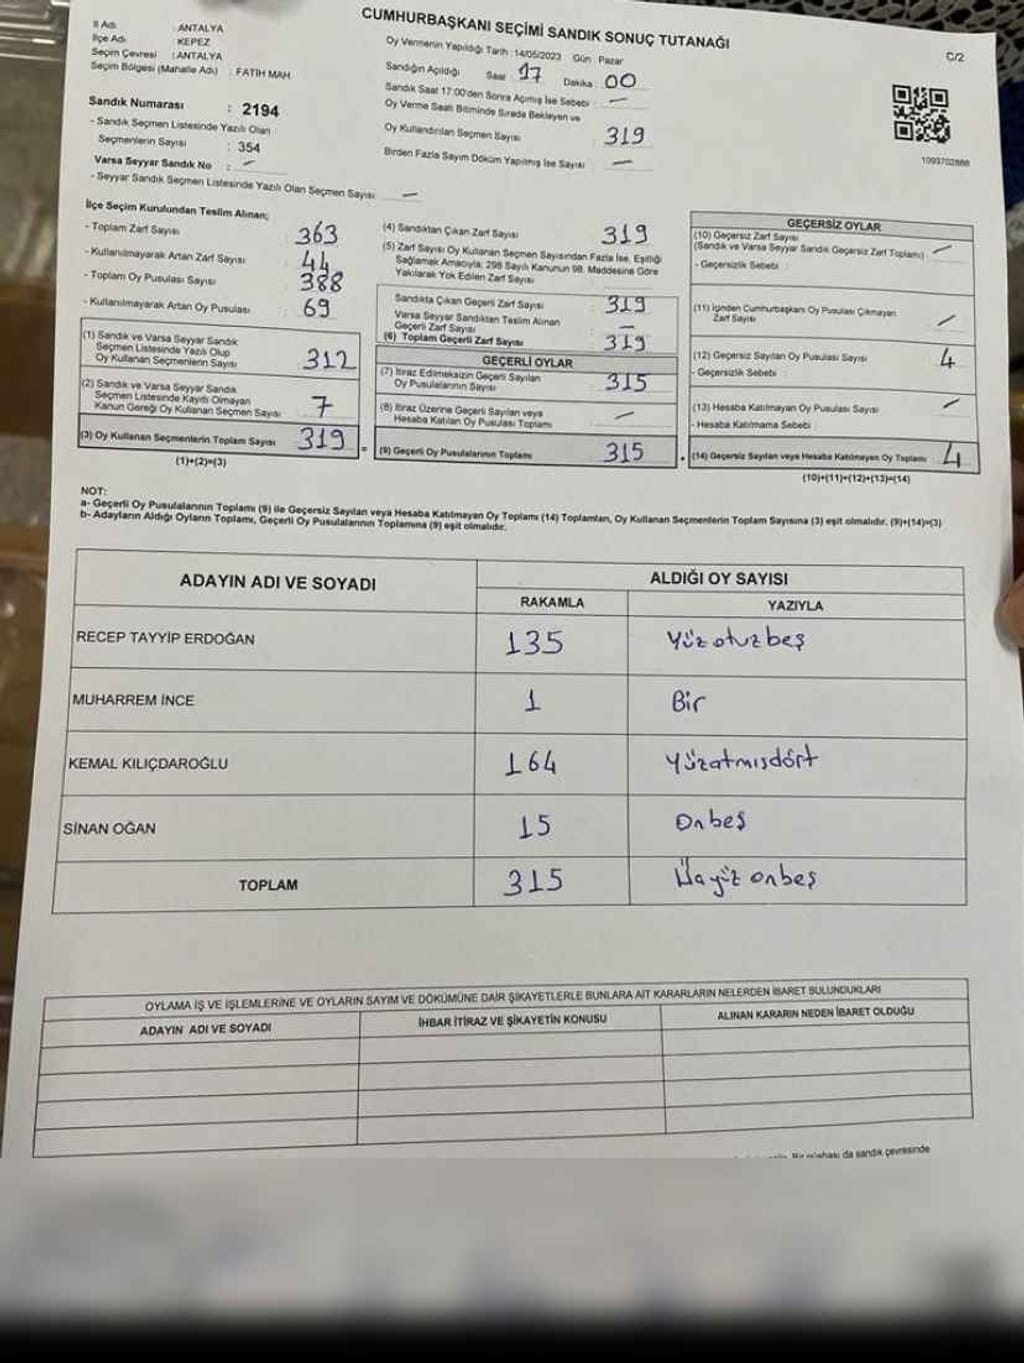 CUMHURBAŞKANI SEÇİMİ SANDIK SONUÇ TUTANAĞI
C/2
İl Adı : ANTALYA
İlçe Adı : KEPEZ
Seçim Çevresi : ANTALYA
Seçim Bölgesi (Mahalle Adı) : FATİH MAH.
Sandık Numarası : 2194
- Sandık Seçmen Listesinde Yazılı Olan
Seçmenlerin Sayısı : 354
Varsa Seyyar Sandık No : —
- Seyyar Sandık Seçmen Listesinde Yazılı Olan Seçmen Sayısı: —
Oy Vermenin Yapıldığı Tarih : 14/05/2023 Gün Pazar
Sandığın Açıldığı Saat 17 Dakika 00
Sandık Saat 17:00'den Sonra Açılmış İse Sebebi : —
Oy Verme Saati Bitiminde Sırada Bekleyen ve
Oy Kullandırılan Seçmen Sayısı : 319
Birden Fazla Sayım Döküm Yapılmış İse Sayısı : —
1093702888
İlçe Seçim Kurulundan Teslim Alınan;
- Toplam Zarf Sayısı : 363
- Kullanılmayarak Artan Zarf Sayısı : 44
- Toplam Oy Pusulası Sayısı : 388
- Kullanılmayarak Artan Oy Pusulası : 69
(1) Sandık ve Varsa Seyyar Sandık
Seçmen Listesinde Yazılı Olup
Oy Kullanan Seçmenlerin Sayısı : 312
(2) Sandık ve Varsa Seyyar Sandık
Seçmen Listesinde Kayıtlı Olmayan
Kanun Gereği Oy Kullanan Seçmen Sayısı : 7
(3) Oy Kullanan Seçmenlerin Toplam Sayısı : 319 =
(1)+(2)=(3)
(4) Sandıktan Çıkan Zarf Sayısı : 319
(5) Zarf Sayısı Oy Kullanan Seçmen Sayısından Fazla İse, Eşitliği
Sağlamak Amacıyla; 298 Sayılı Kanunun 98. Maddesine Göre
Yakılarak Yok Edilen Zarf Sayısı :
Sandıkta Çıkan Geçerli Zarf Sayısı : 319
Varsa Seyyar Sandıktan Teslim Alınan
Geçerli Zarf Sayısı : —
(6) Toplam Geçerli Zarf Sayısı : 319
GEÇERLİ OYLAR
(7) İtiraz Edilmeksizin Geçerli Sayılan
Oy Pusulalarının Sayısı : 315
(8) İtiraz Üzerine Geçerli Sayılan veya
Hesaba Katılan Oy Pusulası Toplamı : —
(9) Geçerli Oy Pusulalarının Toplamı : 315
GEÇERSİZ OYLAR
(10) Geçersiz Zarf Sayısı
(Sandık ve Varsa Seyyar Sandık Geçersiz Zarf Toplamı) : —
- Geçersizlik Sebebi :
(11) İçinden Cumhurbaşkanı Oy Pusulası Çıkmayan
Zarf Sayısı : —
(12) Geçersiz Sayılan Oy Pusulası Sayısı : 4
- Geçersizlik Sebebi :
(13) Hesaba Katılmayan Oy Pusulası Sayısı : —
- Hesaba Katılmama Sebebi :
(14) Geçersiz Sayılan veya Hesaba Katılmayan Oy Toplamı : 4
(10)+(11)+(12)+(13)=(14)
NOT:
a- Geçerli Oy Pusulalarının Toplamı (9) ile Geçersiz Sayılan veya Hesaba Katılmayan Oy Toplamı (14) Toplamları, Oy Kullanan Seçmenlerin Toplam Sayısına (3) eşit olmalıdır. (9)+(14)=(3)
b- Adayların Aldığı Oyların Toplamı, Geçerli Oy Pusulalarının Toplamına (9) eşit olmalıdır.
ADAYIN ADI VE SOYADI ALDIĞI OY SAYISI
RAKAMLA YAZIYLA
RECEP TAYYİP ERDOĞAN 135 Yüzotuzbeş
MUHARREM İNCE 1 Bir
KEMAL KILIÇDAROĞLU 164 Yüzatmışdört
SİNAN OĞAN 15 Onbeş
TOPLAM 315 Üçyüz onbeş
OYLAMA İŞ VE İŞLEMLERİNE VE OYLARIN SAYIM VE DÖKÜMÜNE DAİR ŞİKAYETLERLE BUNLARA AİT KARARLARIN NELERDEN İBARET BULUNDUKLARI
ADAYIN ADI VE SOYADI İHBAR İTİRAZ VE ŞİKAYETİN KONUSU ALINAN KARARIN NEDEN İBARET OLDUĞU
Bir nüshası da sandık çevresinde